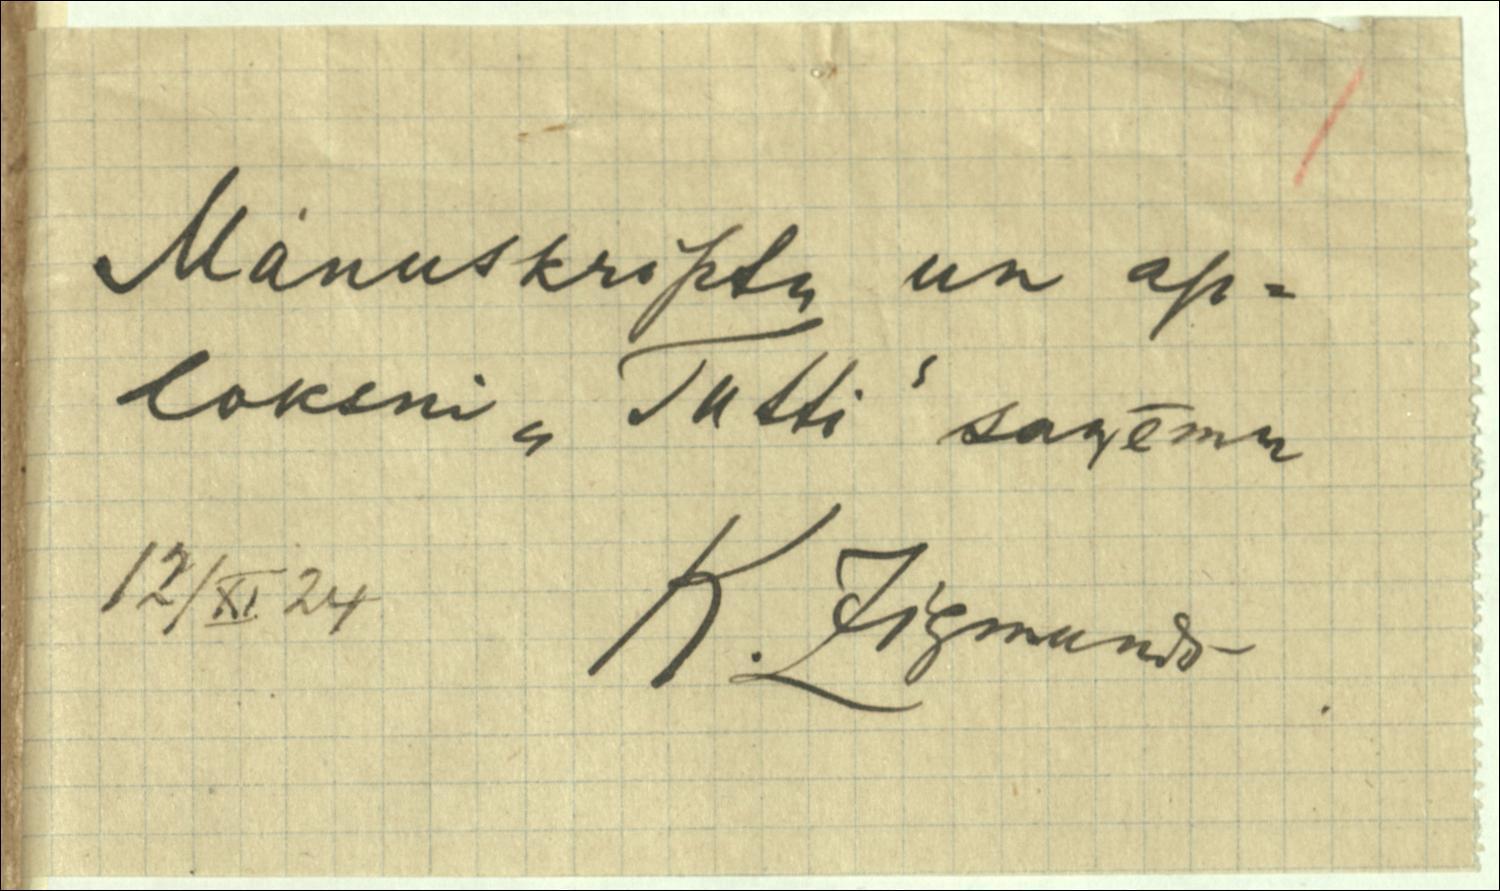 Manuskriptu un ap=
loksni „Tutti“ saņēmu
12/XI 24 K. Zigmunds